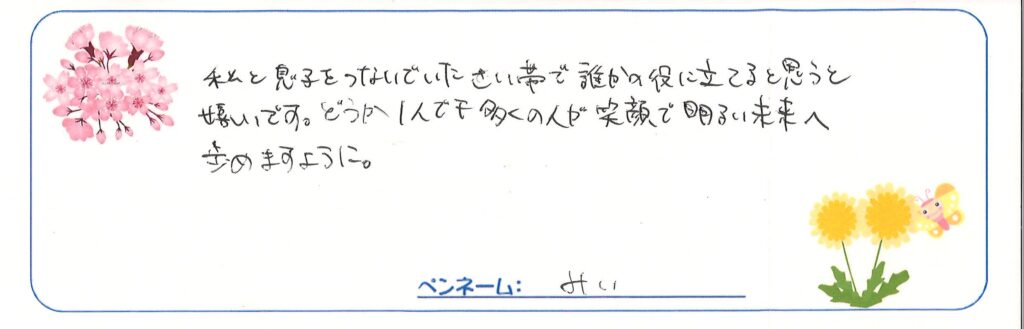 私と息子をつないでいたさい帯で誰かの役に立てると思うと
嬉しいです。どうか1人でも多くの人が笑顔で明るい未来へ
歩めますように。
ペンネーム: みい